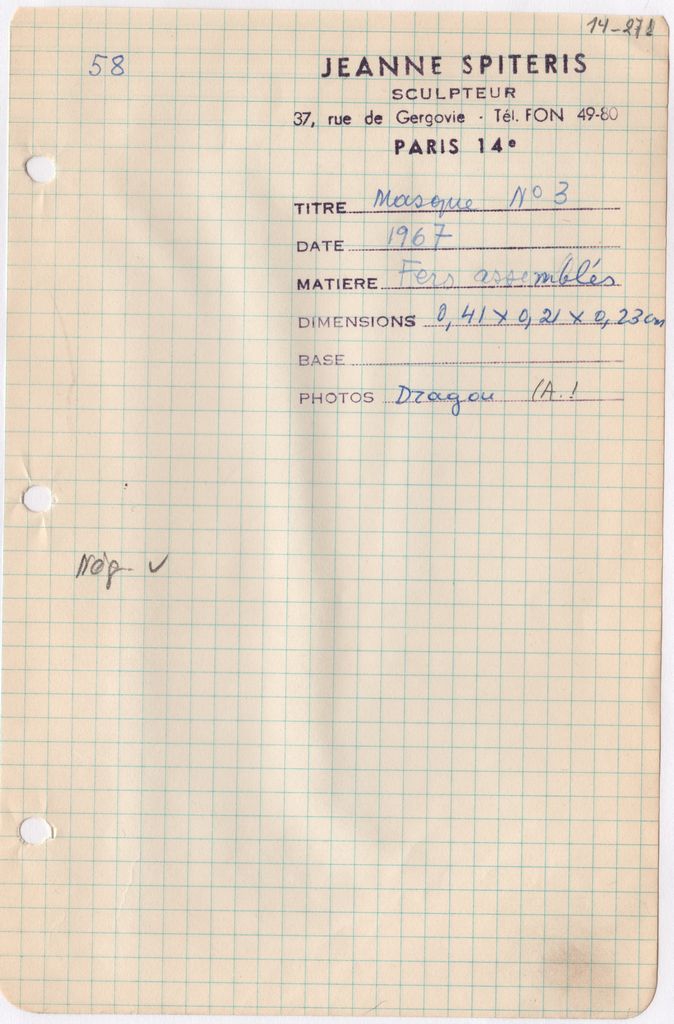 58
14-271
JEANNE SPITERIS
SCULPTEUR
37, rue de Gergovie - Tél. FON 49-80
PARIS 14e
TITRE Masque No 3
DATE 1967
MATIERE Fers assemblés
DIMENSIONS 0,41 x 0,21 x 0,23 cm
BASE
PHOTOS Dragou (A.!
Nég. ✓